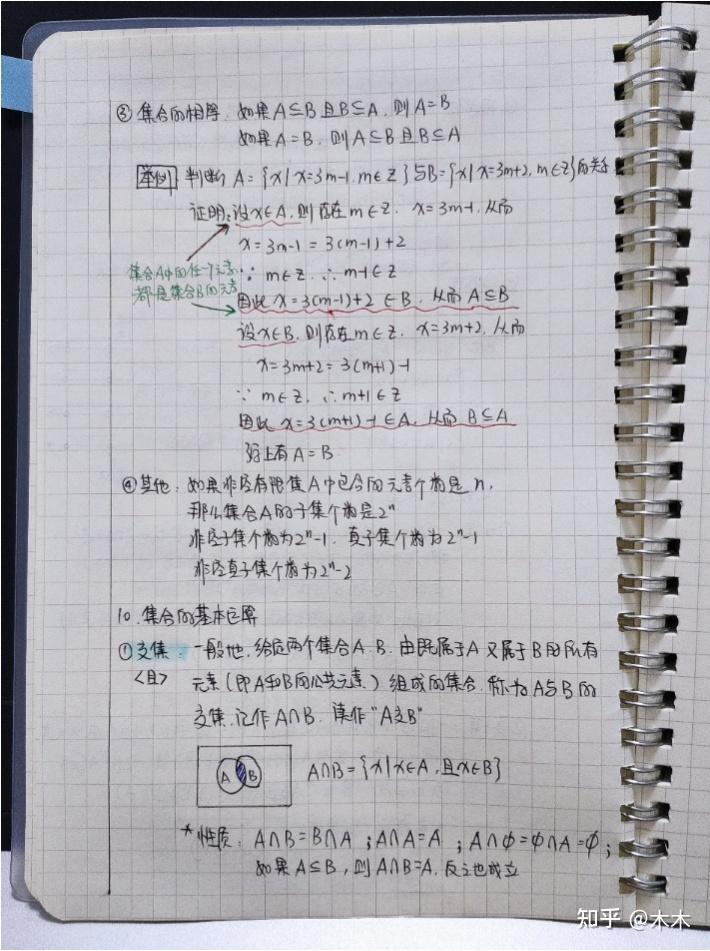 ③ 集合的相等. 如果 A⊆B 且 B⊆A, 则 A=B
如果 A=B, 则 A⊆B 且 B⊆A
举例 判断 A={x|x=3m-1, m∈Z}与B={x|x=3m+2, m∈Z}的关系
证明: 设x∈A, 则存在 m∈Z. x=3m-1, 从而
x=3m-1=3(m-1)+2
集合A中的任一个元素
都是集合B的元素
∵ m∈Z ∴ m-1∈Z
因此 x=3(m-1)+2∈B, 从而 A⊆B
设x∈B, 则存在m∈Z. x=3m+2, 从而
x=3m+2=3(m+1)-1
∵ m∈Z, ∴ m+1∈Z
因此 x=3(m+1)-1∈A, 从而 B⊆A
综上有 A=B
④ 其他: 如果非空有限集A中包含的元素个数是n,
那么集合A的子集个数是2ⁿ
非空子集个数为2ⁿ-1. 真子集个数为2ⁿ-1
非空真子集个数为2ⁿ-2
10. 集合的基本运算
① 交集: 一般地, 给定两个集合A.B, 由既属于A又属于B的所有
<且> 元素(即A和B的公共元素)组成的集合, 称为A与B的
交集, 记作A∩B. 读作"A交B"
A B A∩B={x|x∈A, 且x∈B}
*性质: A∩B=B∩A ; A∩A=A ; A∩φ=φ∩A=φ;
如果A⊆B, 则A∩B=A, 反之也成立
知乎 @木木